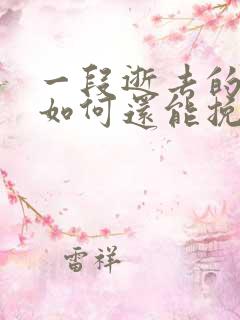 一段逝去的
如何還能挽
雷祥